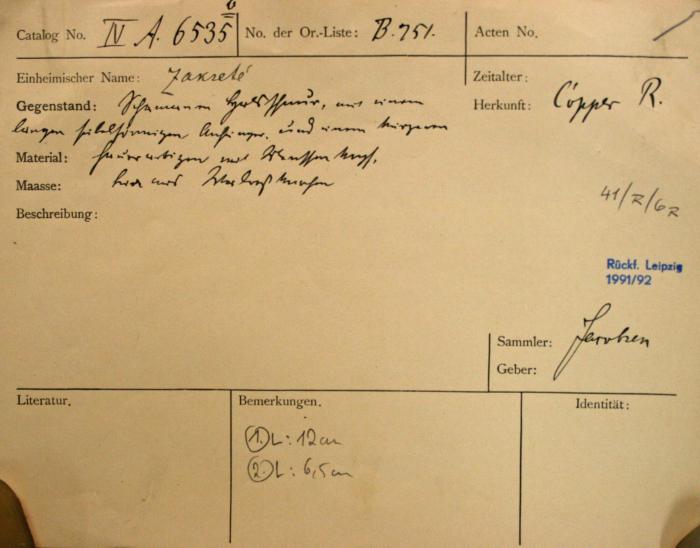 Catalog No. IV A. 6535 b
No. der Or.-Liste: B.751.
Acten No.
Einheimischer Name: Zakseté
Zeitalter:
Gegenstand: Schamanen Halsschnur, mit einem
Herkunft: Cópper R.
langen säbelförmigen Anhänger, und einem kürzeren
Material: mit Menschenkopf,
Maasse: beide aus
41/Z/62
Beschreibung:
Rückf. Leipzig
1991/92
Sammler: Jacobsen
Geber:
Literatur.
Bemerkungen.
Identität:
1. L: 12cm
2. L: 6,5cm